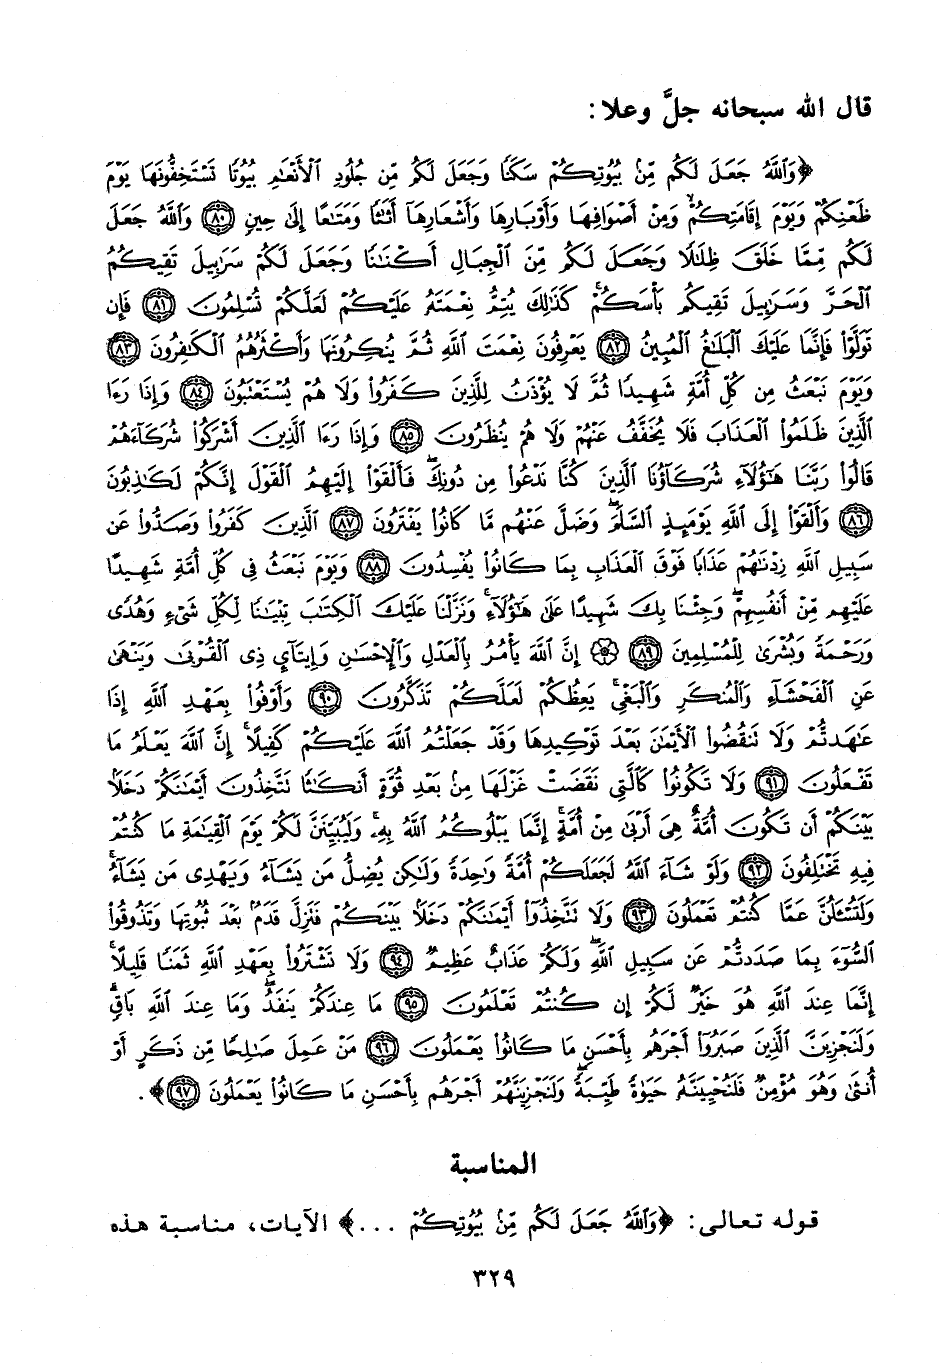 قال الله سبحانه جلَّ وعلا:
﴿وَٱللَّهُ جَعَلَ لَكُم مِّنۢ بُيُوتِكُمۡ سَكَنٗا وَجَعَلَ لَكُم مِّن جُلُودِ ٱلۡأَنۡعَٰمِ بُيُوتٗا تَسۡتَخِفُّونَهَا يَوۡمَ
ظَعۡنِكُمۡ وَيَوۡمَ إِقَامَتِكُمۡۙ وَمِنۡ أَصۡوَافِهَا وَأَوۡبَارِهَا وَأَشۡعَارِهَآ أَثَٰثٗا وَمَتَٰعًا إِلَىٰ حِينٖ ٨٠ وَٱللَّهُ جَعَلَ
لَكُم مِّمَّا خَلَقَ ظِلَٰلٗا وَجَعَلَ لَكُم مِّنَ ٱلۡجِبَالِ أَكۡنَٰنٗا وَجَعَلَ لَكُمۡ سَرَٰبِيلَ تَقِيكُمُ
ٱلۡحَرَّ وَسَرَٰبِيلَ تَقِيكُم بَأۡسَكُمۡۚ كَذَٰلِكَ يُتِمُّ نِعۡمَتَهُۥ عَلَيۡكُمۡ لَعَلَّكُمۡ تُسۡلِمُونَ ٨١ فَإِن
تَوَلَّوۡاْ فَإِنَّمَا عَلَيۡكَ ٱلۡبَلَٰغُ ٱلۡمُبِينُ ٨٢ يَعۡرِفُونَ نِعۡمَتَ ٱللَّهِ ثُمَّ يُنكِرُونَهَا وَأَكۡثَرُهُمُ ٱلۡكَٰفِرُونَ ٨٣
وَيَوۡمَ نَبۡعَثُ مِن كُلِّ أُمَّةٖ شَهِيدٗا ثُمَّ لَا يُؤۡذَنُ لِلَّذِينَ كَفَرُواْ وَلَا هُمۡ يُسۡتَعۡتَبُونَ ٨٤ وَإِذَا رَءَا
ٱلَّذِينَ ظَلَمُواْ ٱلۡعَذَابَ فَلَا يُخَفَّفُ عَنۡهُمۡ وَلَا هُمۡ يُنظَرُونَ ٨٥ وَإِذَا رَءَا ٱلَّذِينَ أَشۡرَكُواْ شُرَكَآءَهُمۡ
قَالُواْ رَبَّنَا هَٰٓؤُلَآءِ شُرَكَآؤُنَا ٱلَّذِينَ كُنَّا نَدۡعُواْ مِن دُونِكَۖ فَأَلۡقَوۡاْ إِلَيۡهِمُ ٱلۡقَوۡلَ إِنَّكُمۡ لَكَٰذِبُونَ
٨٦ وَأَلۡقَوۡاْ إِلَى ٱللَّهِ يَوۡمَئِذٍ ٱلسَّلَمَۖ وَضَلَّ عَنۡهُم مَّا كَانُواْ يَفۡتَرُونَ ٨٧ ٱلَّذِينَ كَفَرُواْ وَصَدُّواْ عَن
سَبِيلِ ٱللَّهِ زِدۡنَٰهُمۡ عَذَابٗا فَوۡقَ ٱلۡعَذَابِ بِمَا كَانُواْ يُفۡسِدُونَ ٨٨ وَيَوۡمَ نَبۡعَثُ فِي كُلِّ أُمَّةٖ شَهِيدًا
عَلَيۡهِم مِّنۡ أَنفُسِهِمۡۖ وَجِئۡنَا بِكَ شَهِيدًا عَلَىٰ هَٰٓؤُلَآءِۚ وَنَزَّلۡنَا عَلَيۡكَ ٱلۡكِتَٰبَ تِبۡيَٰنٗا لِّكُلِّ شَيۡءٖ وَهُدٗى
وَرَحۡمَةٗ وَبُشۡرَىٰ لِلۡمُسۡلِمِينَ ٨٩ ۞ إِنَّ ٱللَّهَ يَأۡمُرُ بِٱلۡعَدۡلِ وَٱلۡإِحۡسَٰنِ وَإِيتَآيِٕ ذِي ٱلۡقُرۡبَىٰ وَيَنۡهَىٰ
عَنِ ٱلۡفَحۡشَآءِ وَٱلۡمُنكَرِ وَٱلۡبَغۡيِۚ يَعِظُكُمۡ لَعَلَّكُمۡ تَذَكَّرُونَ ٩٠ وَأَوۡفُواْ بِعَهۡدِ ٱللَّهِ إِذَا
عَٰهَدتُّمۡ وَلَا تَنقُضُواْ ٱلۡأَيۡمَٰنَ بَعۡدَ تَوۡكِيدِهَا وَقَدۡ جَعَلۡتُمُ ٱللَّهَ عَلَيۡكُمۡ كَفِيلًاۚ إِنَّ ٱللَّهَ يَعۡلَمُ مَا
تَفۡعَلُونَ ٩١ وَلَا تَكُونُواْ كَٱلَّتِي نَقَضَتۡ غَزۡلَهَا مِنۢ بَعۡدِ قُوَّةٍ أَنكَٰثٗا تَتَّخِذُونَ أَيۡمَٰنَكُمۡ دَخَلَۢا
بَيۡنَكُمۡ أَن تَكُونَ أُمَّةٌ هِيَ أَرۡبَىٰ مِنۡ أُمَّةٍۚ إِنَّمَا يَبۡلُوكُمُ ٱللَّهُ بِهِۦۚ وَلَيُبَيِّنَنَّ لَكُمۡ يَوۡمَ ٱلۡقِيَٰمَةِ مَا كُنتُمۡ
فِيهِ تَخۡتَلِفُونَ ٩٢ وَلَوۡ شَآءَ ٱللَّهُ لَجَعَلَكُمۡ أُمَّةٗ وَٰحِدَةٗ وَلَٰكِن يُضِلُّ مَن يَشَآءُ وَيَهۡدِي مَن يَشَآءُۚ
وَلَتُسۡـَٔلُنَّ عَمَّا كُنتُمۡ تَعۡمَلُونَ ٩٣ وَلَا تَتَّخِذُوٓاْ أَيۡمَٰنَكُمۡ دَخَلَۢا بَيۡنَكُمۡ فَتَزِلَّ قَدَمُۢ بَعۡدَ ثُبُوتِهَا وَتَذُوقُواْ
ٱلسُّوٓءَ بِمَا صَدَدتُّمۡ عَن سَبِيلِ ٱللَّهِۖ وَلَكُمۡ عَذَابٌ عَظِيمٞ ٩٤ وَلَا تَشۡتَرُواْ بِعَهۡدِ ٱللَّهِ ثَمَنٗا قَلِيلًاۚ
إِنَّمَا عِندَ ٱللَّهِ هُوَ خَيۡرٞ لَّكُمۡ إِن كُنتُمۡ تَعۡلَمُونَ ٩٥ مَا عِندَكُمۡ يَنفَدُ وَمَا عِندَ ٱللَّهِ بَاقٖۗ
وَلَنَجۡزِيَنَّ ٱلَّذِينَ صَبَرُوٓاْ أَجۡرَهُم بِأَحۡسَنِ مَا كَانُواْ يَعۡمَلُونَ ٩٦ مَنۡ عَمِلَ صَٰلِحٗا مِّن ذَكَرٍ أَوۡ
أُنثَىٰ وَهُوَ مُؤۡمِنٞ فَلَنُحۡيِيَنَّهُۥ حَيَوٰةٗ طَيِّبَةٗۖ وَلَنَجۡزِيَنَّهُمۡ أَجۡرَهُم بِأَحۡسَنِ مَا كَانُواْ يَعۡمَلُونَ ٩٧﴾.
المناسبة
قوله تعالى: ﴿وَٱللَّهُ جَعَلَ لَكُم مِّنۢ بُيُوتِكُمۡ ...﴾ الآيات، مناسبة هذه
٣٢٩